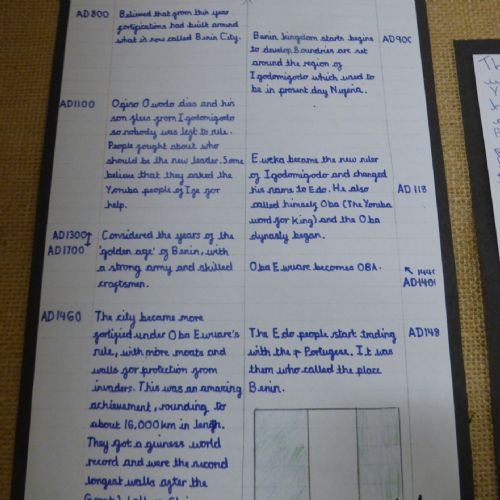 AD800
Believed that from this year
fortifications had built around
what is now called Benin City.
Benin kingdom starts begins
to develop. Boundries are set
around the region of
Igodomigodo which used to
be in present day Nigeria.
AD900
AD1100
Ogiso Owodo dies and his
son flees from Igodomigodo
so nobody was left to rule.
People fought about who
should be the new leader. Some
believe that they asked the
Yoruba people of Ife for
help.
Eweka became the new ruler
of Igodomigodo and changed
his name to Edo. He also
called himself Oba (The Yoruba
word for King) and the Oba
dynasty began.
AD118
AD1300
AD1700
Considered the years of the
'golden age' of Benin, with
a strong army and skilled
craftsmen.
Oba Ewuare becomes OBA.
AD1460
The city became more
fortified under Oba Ewuare's
rule, with more moats and
walls for protection from
invaders. This was an amazing
achievement, rounding to
about 16,000km in length.
They got a guiness world
record and were the second
longest walls after the
The Edo people start trading
with the Portugese. It was
them who called the place
Benin.
AD148